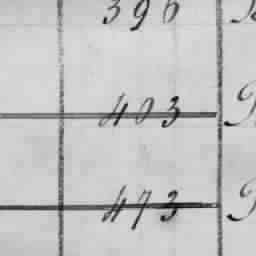 396
403
473